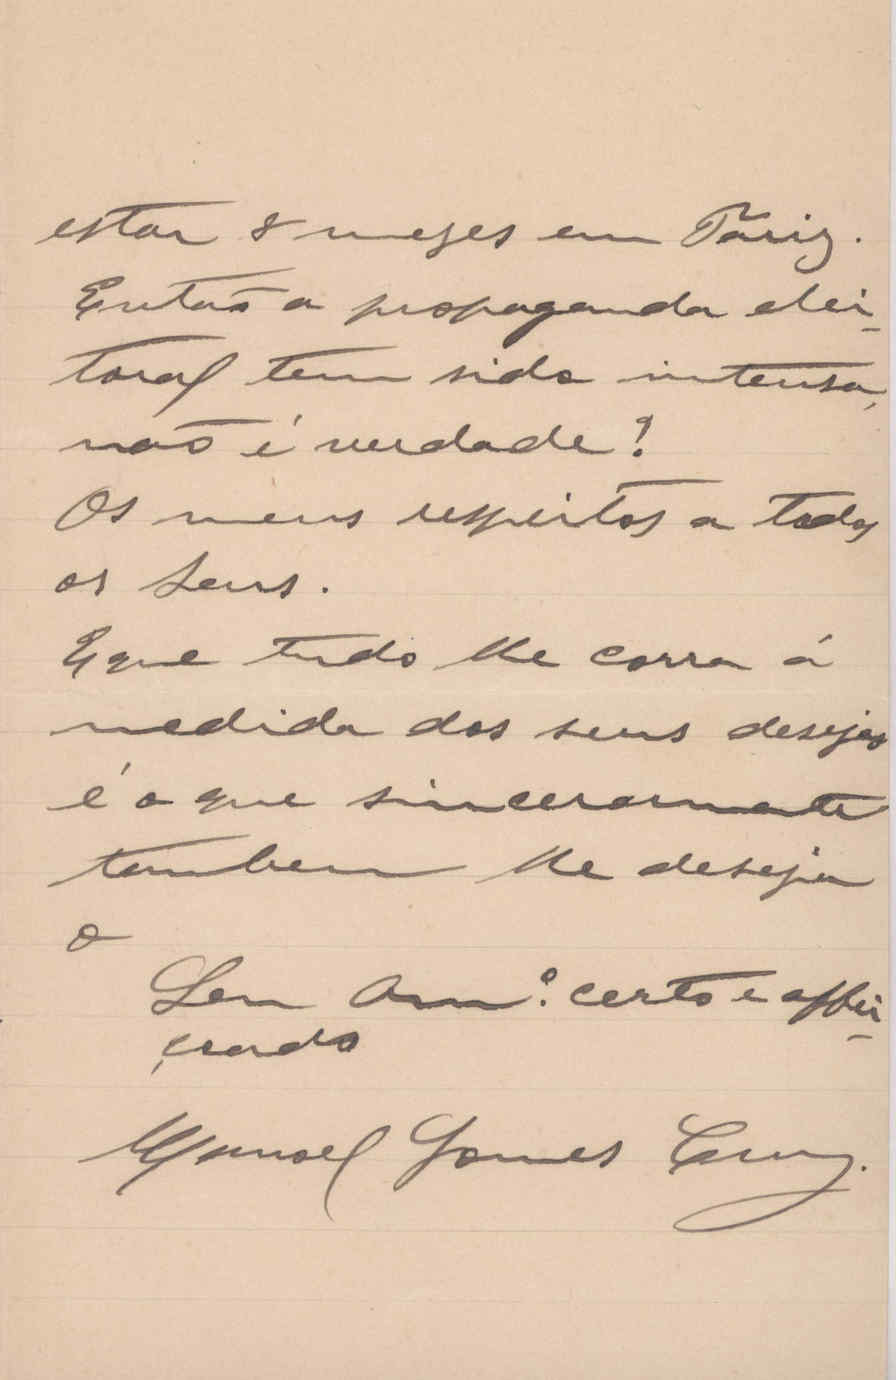 estar 8 mezes em Pariz.
Então a propaganda elei-
toral tem sido intensa,
não é verdade?
Os meus respeitos a todos
os Seus.
E que tudo lhe corra á
medida dos seus desejos
é o que sinceramente
tambem lhe deseja
o
Seu Am.º certo e affei-
çoado
Manoel Gomes Cruz.